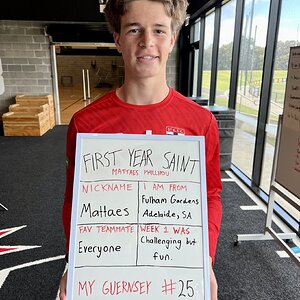 FIRST YEAR SAINT
MATTAES PHILLIPOU
NICKNAME
Mattaes
I AM FROM
Fulham Gardens
Adelaide, SA
FAV TEAMMATE
Everyone
WEEK 1 WAS
Challenging but
fun.
MY GUERNSEY #25